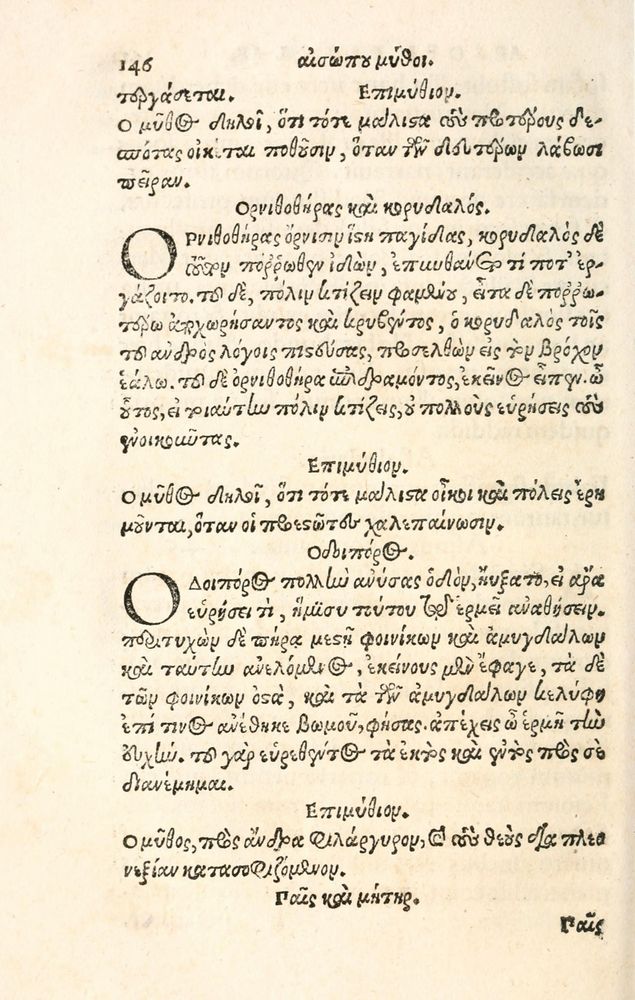 146 αἰσώπου μῦθοι.
τεργάσεται. Επιμύθιον.
Ο μῦθος δηλοῖ, ὅτι τότε μάλιστα τοὺς προτέρους δε-
σπότας οἰκέται ποθοῦσιν, ὅταν τῶν δευτέρων λάβωσι
πεῖραν.
Ορνιθοθήρας καὶ κορυδαλός.
ΟΡνιθοθήρας ὄρνισιν ἵστη παγίδας, κορυδαλὸς δὲ
τοῦτον πόῤῥωθεν ἰδὼν, ἐπυνθάνετο τί ποτ' ἐρ-
γάζοιτο. τοῦ δὲ, πόλιν κτίζειν φαμένου, εἶτα δὲ ποῤῥω-
τέρω ἀποχωρήσαντος καὶ κρυβέντος, ὁ κορυδαλὸς τοῖς
τοῦ ἀνδρὸς λόγοις πιστεύσας, προσελθὼν εἰς τὸν βρόχον
ἑάλω. τοῦ δὲ ὀρνιθοθήρα ἐπιδραμόντος, ἐκεῖνος εἶπεν. ὦ
οὗτος, εἰ τοιαύτην πόλιν κτίζεις, οὐ πολλοὺς εὑρήσεις τοὺς
ἐνοικοῦντας.
Επιμύθιον.
Ο μῦθος δηλοῖ, ὅτι τότε μάλιστα οἶκοι καὶ πόλεις ἐρη
μοῦνται, ὅταν οἱ προεστῶτες χαλεπαίνωσιν.
Οδοιπόρος.
ΟΔοιπόρος πολλὴν ἀνύσας ὁδὸν, ηὔξατο, εἰ ἄρα
εὑρήσει τὶ, ἥμισυ τούτου τῷ ἑρμεῖ ἀναθήσειν.
περιτυχὼν δὲ πήρα μεστῇ φοινίκων καὶ ἀμυγδάλων
καὶ ταύτην ἀνελόμενος, ἐκείνους μὲν ἔφαγε, τὰ δὲ
τῶν φοινίκων ὀστὰ, καὶ τὰ τῶν ἀμυγδάλων κελύφη
ἐπί τινος ἀνέθηκε βωμοῦ, φήσας. ἀπέχεις ὦ ἑρμῆ τὴν
εὐχήν. τοῦ γὰρ εὑρεθέντος τὰ ἐκτὸς καὶ ἐντὸς πρὸς σὲ
διανέμημαι.
Επιμύθιον.
Ο μῦθος, πρὸς ἄνδρα φιλάργυρον, καὶ τοὺς θεοὺς διὰ πλεο
νεξίαν κατασοφιζόμενον.
Παῖς καὶ μήτηρ.
Παῖς